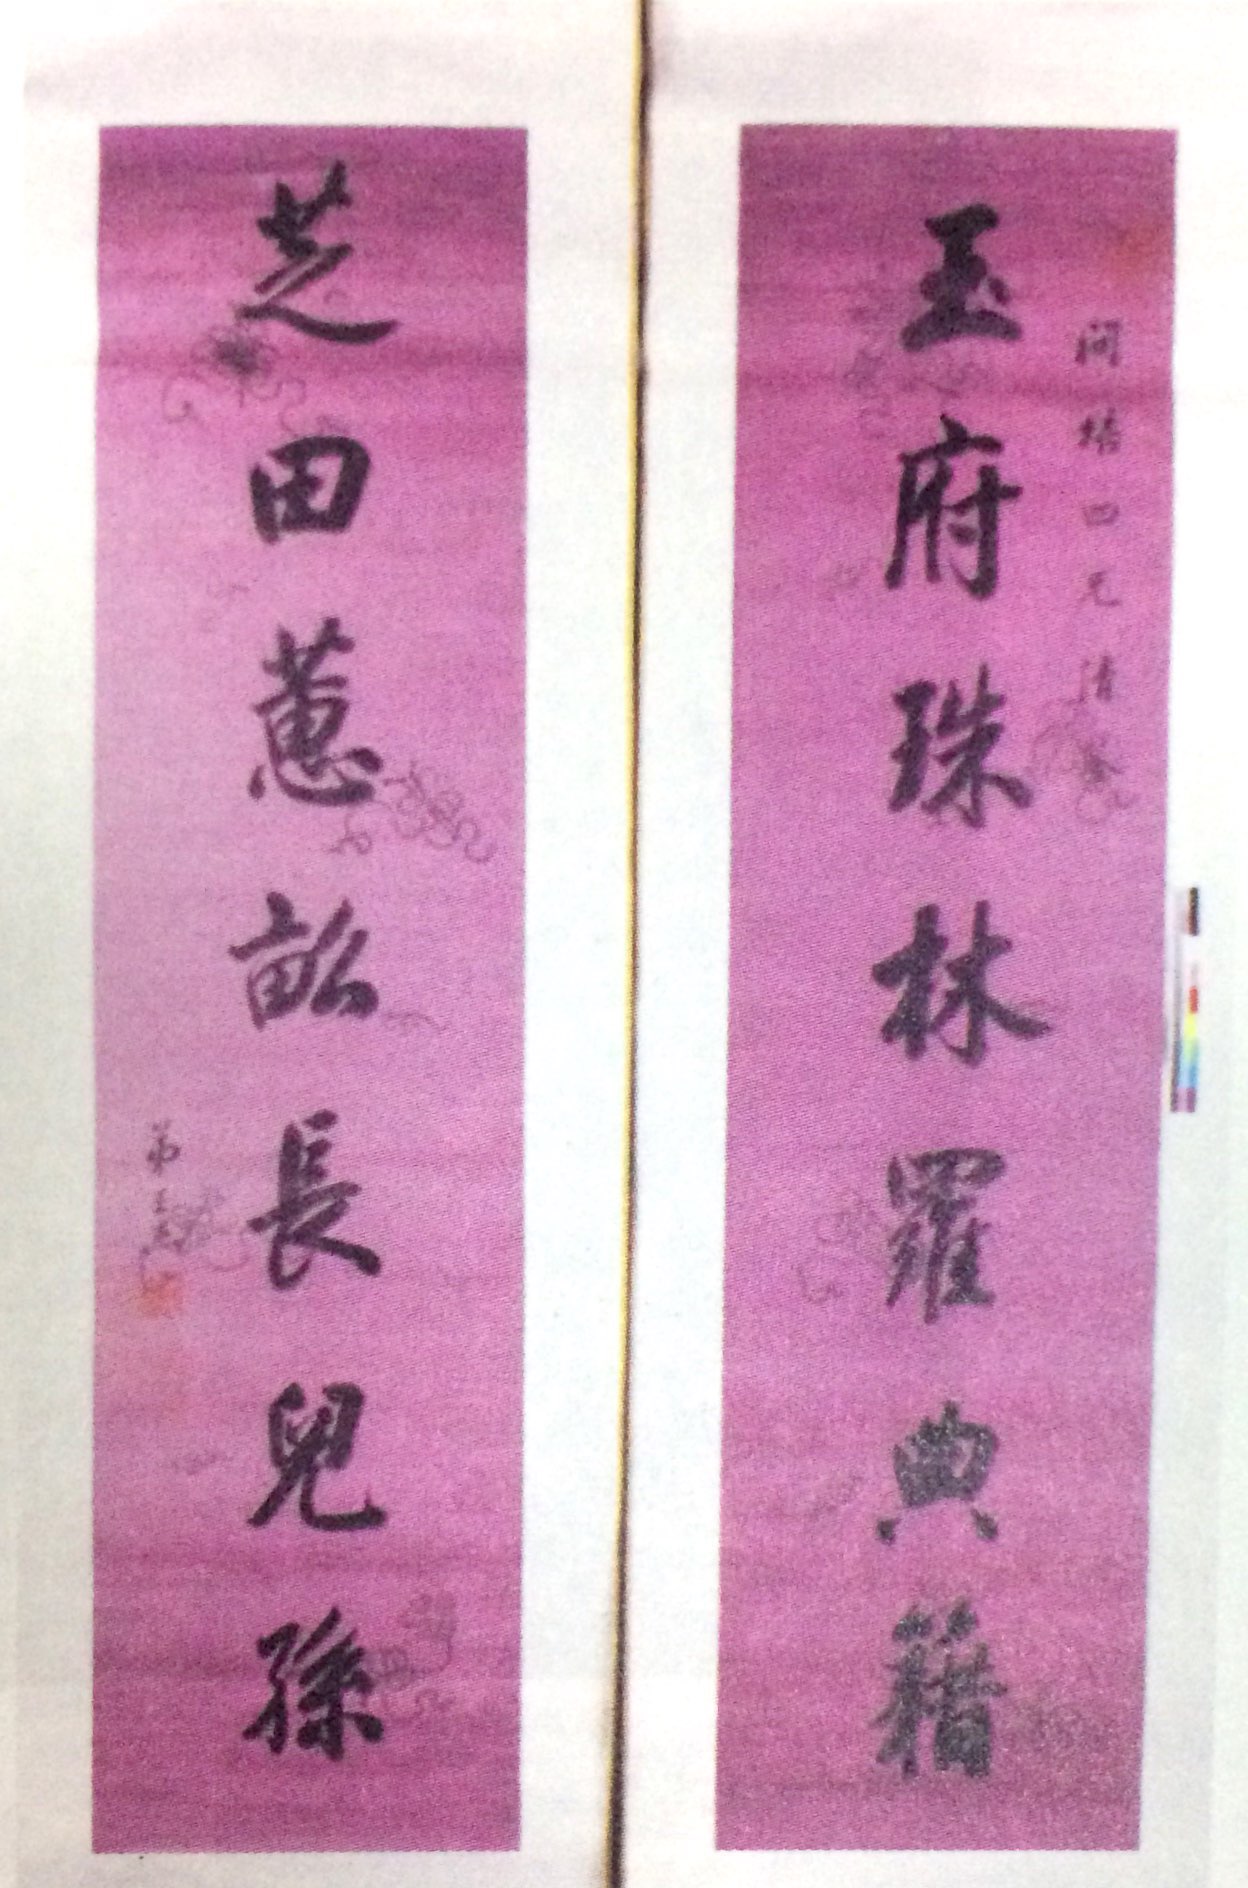 玉府珠林羅典籍
四兄清鑒
芝田蕙畝長兒孫
弟